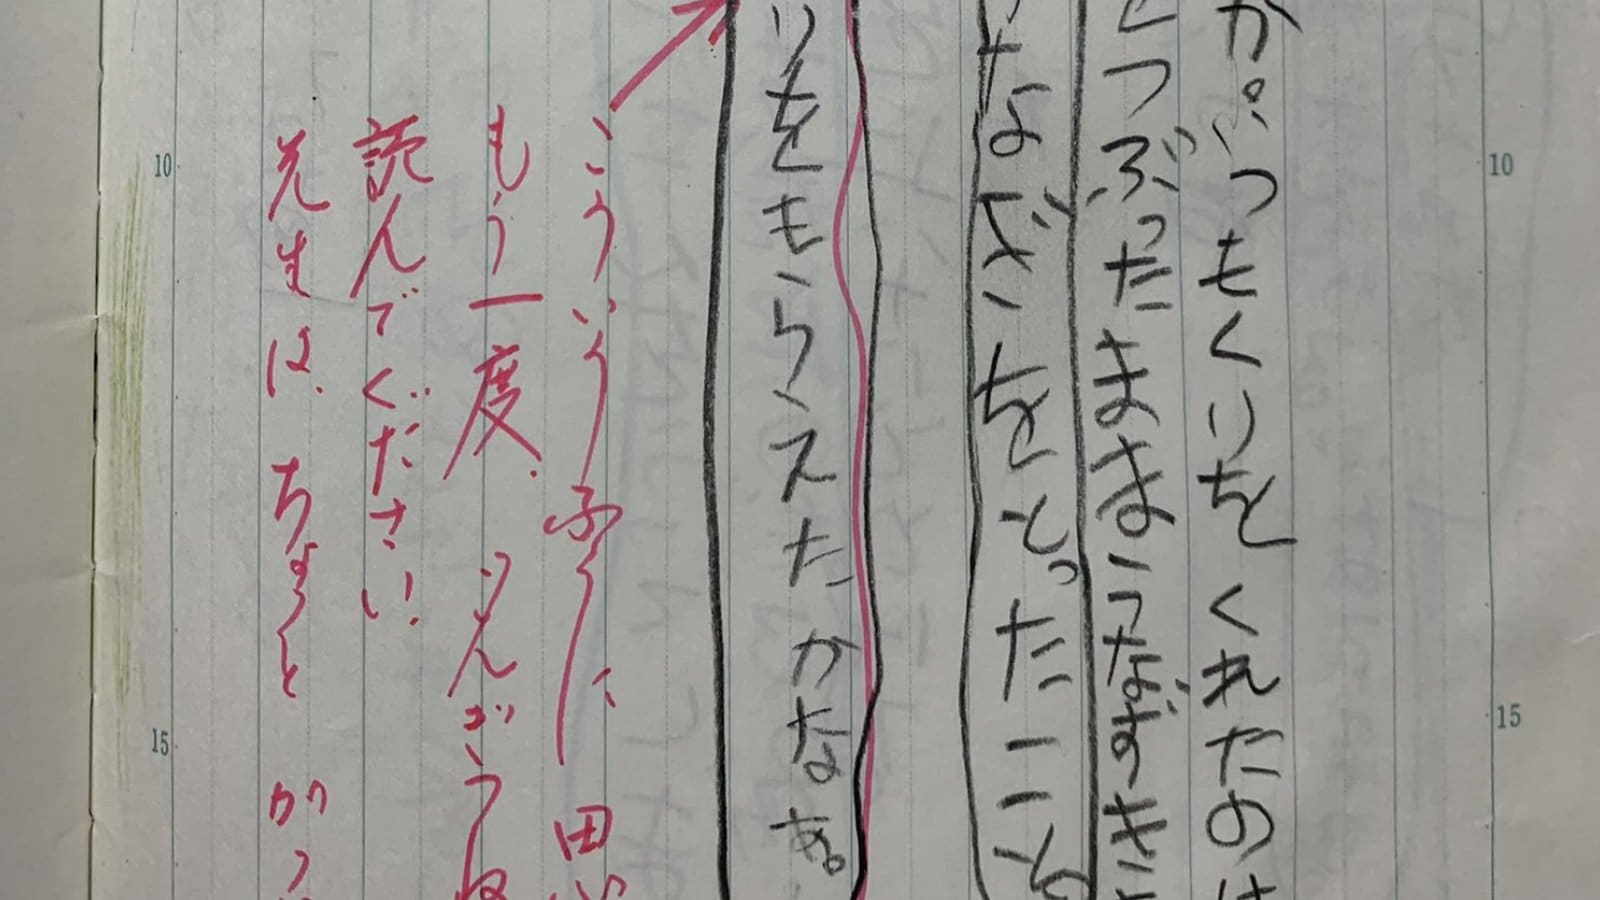 か。いつもくりをくれたのは
つぶったままうなずきま
なぎをとったことを
りをもらえたかなあ。
こういうふうに 思い
もう一度、ごんぎつね
読んでください。
先生は、ちょっと
10
15
10
15